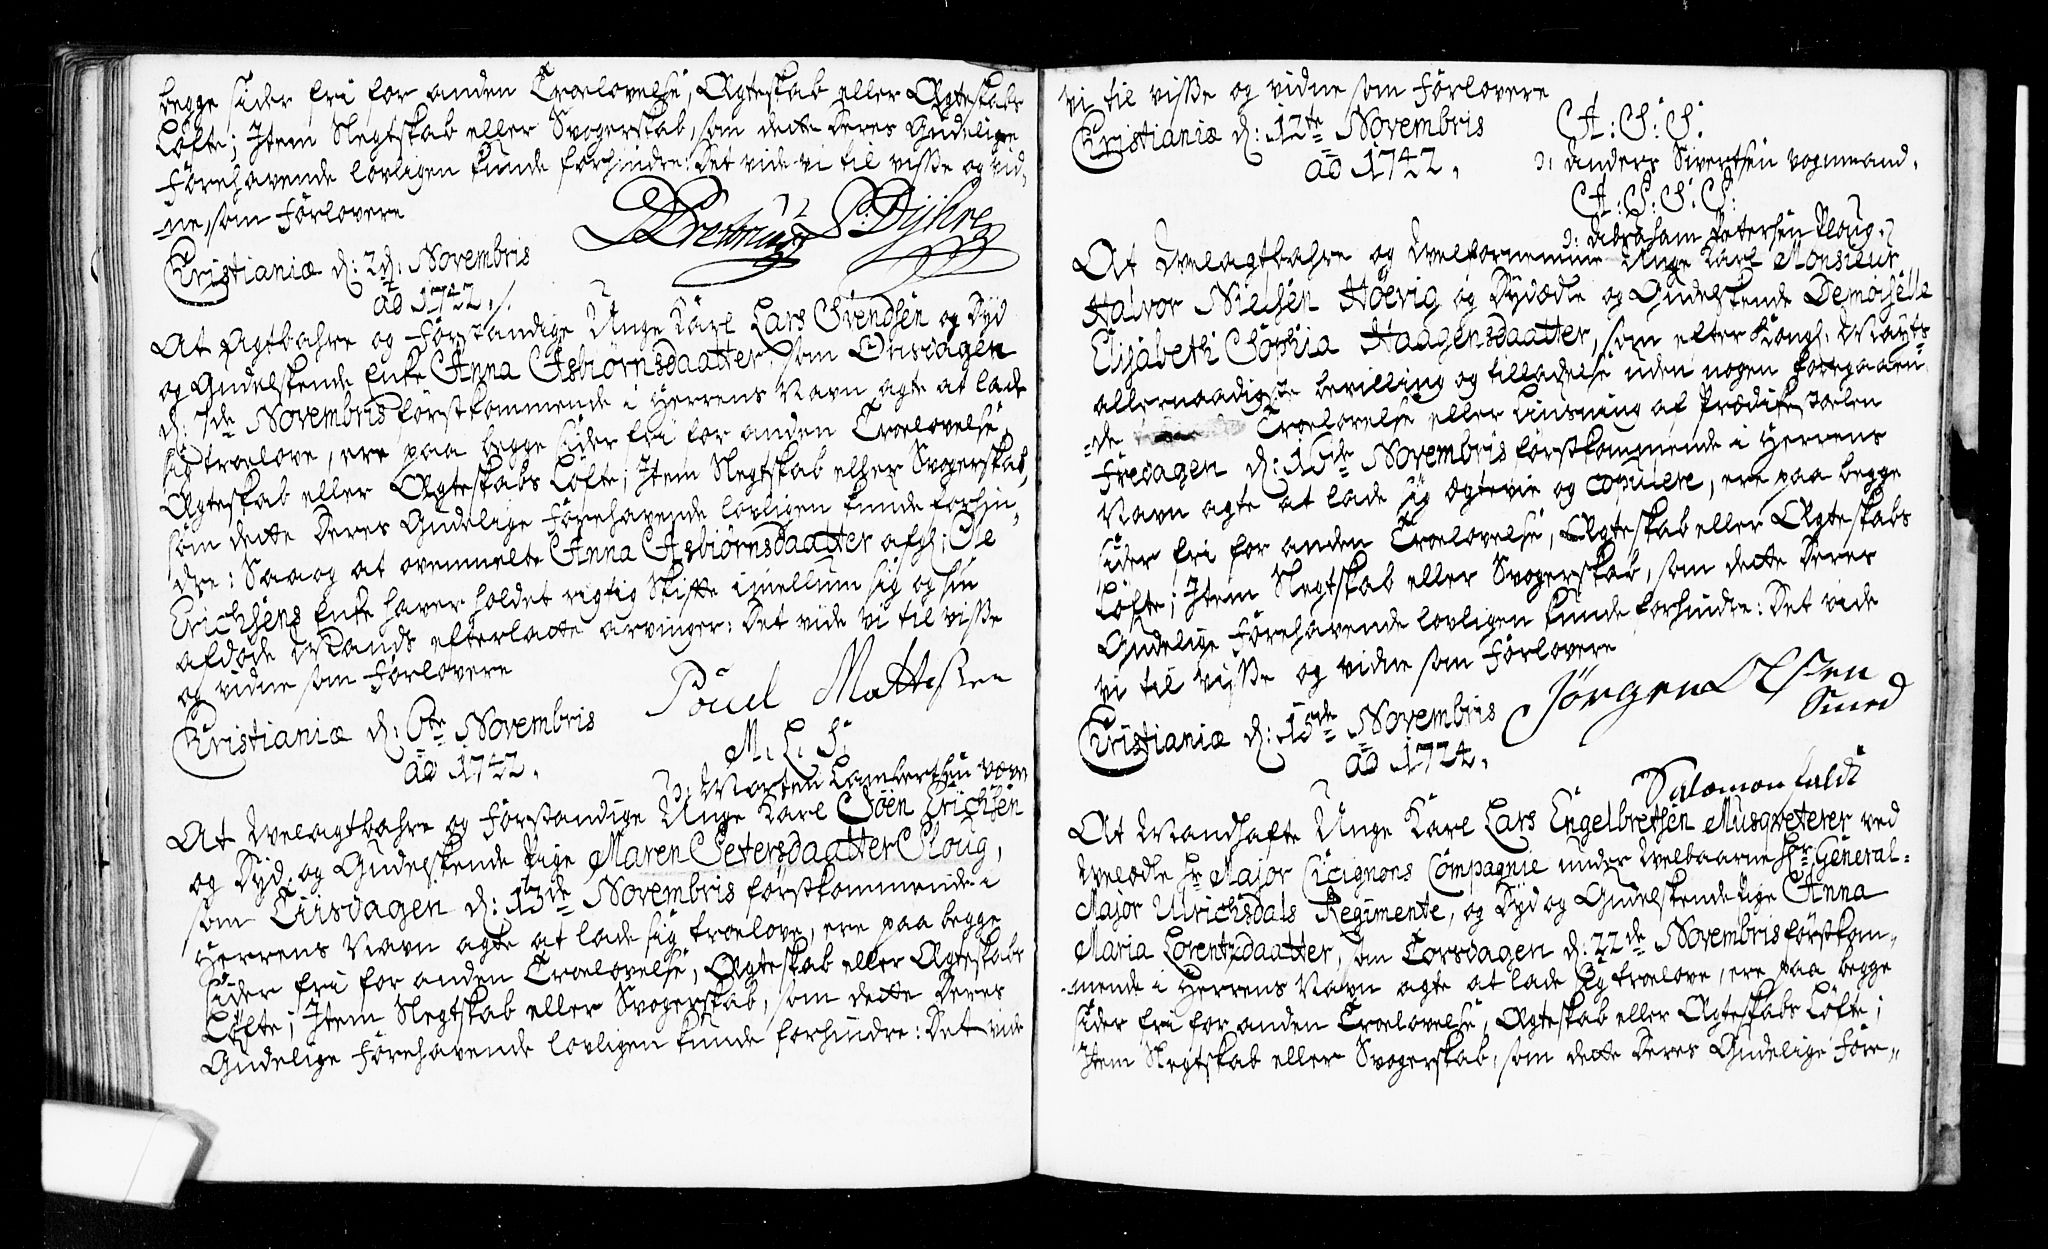 begge sider fri for anden Troelovelse, Ægteskab eller Ægteskabs
Løfte; Item Slegtskab eller Svogerskab, som dette Deres Gudelige
Forehavende lovligen kunde forhindre: Det vide vi til visse og vid,
-ne, som Forlovere
Cristianiæ d: 2d: Novembris
aõ 1742 ./.
At Agtbahre og Forstandige Unge Karl Lars Svendsen og Dyd
og Gudelskende Enke Anna Asbiørnsdaatter, som Onsdagen
d: 7de Novembris førstkommende i Herrens Navn agte at lade
sig troelove, ere paa begge sider fri for anden Troelovelse,
Ægteskab eller Ægteskabs Løfte; Item Slegtskab eller Svogerskab,
som dette Deres Gudelige Forehavende lovligen kunde forhin,
dre: Saa og at ovenmelte Anna Asbiørnsdaatter afg: Ole
Erichsens Enke haver holdet rigtig Skifte imellum sig og sin
afdøde Mands efterlatte arvinger: Det vide vi til visse
og vidne som Forlovere
Pouel Mattissen
Cristianiæ d: 6te Novembris
aõ 1742.
M. L. S:
ɔ: Morten Lambertsen
At Velagtbahre og Forstandige Unge Karl Søen Erichsen
og Dyd og Gudelskende Pige Maren Petersdaatter Ploug,
som Tiisdagen d: 13de Novembris førstkommende i
Herrens Navn agte at lade sig troelove, ere paa begge
sider fri for anden Troelovelse, Ægteskab eller Ægteskabs
Løfte; Item Slegtskab eller Svogerskab, som dette Deres
Gudelige Forehavende lovligen kunde forhindre: Det vide
vi til visse og vidne som Forlovere
Cristianiæ d: 12te Novembris
aõ 1742.
A: S: S:
ɔ: Anders Sivertsen vognmand.
A: P: S: P:
ɔ: Abraham Petersen Ploug.
At Velagtbahre og Velfornemme Unge Karl Monsieur
Halvor Nielsen Høevig og Dydædle og Gudelskende Demoiselle
Elisabeth Sophia Haagensdaatter, som efter Kongl. Mayts
allernaadigste bevilling og tilladelse uden nogen foregaaen
-de Troelovelse eller Liusning af Prædikestoelen
Fredagen d: 16de Novembris førstkommende i Herrens
Navn agte at lade sig ægtevie og copulere, ere paa begge
sider fri for anden Troelovelse, Ægteskab eller Ægteskabs
Løfte; Item Slegtskab eller Svogerskab, som dette Deres
Gudelige Forehavende lovligen kunde forhindre: Det vide
vi til visse og vidne som Forlovere
Jørgen Olsen
Smed
Cristianiæ d: 15de Novembris
aõ 1724.
Salomon faldt
At Mandhafte Unge Karl Lars Engelbretsen Musqveterer ved
Velædle Hr Major Cicignons Compagnie under Velbaarne Hr General-
Major Ulrichsdals Regimente, og Dyd og Gudelskende Pige Anna
Maria Lorentzdaatter, som Torsdagen d: 22de Novembris førstkom-
-mende i Herrens Navn agte at lade sig troelove, ere paa begge
sider fri for anden Troelovelse, Ægteskab eller Ægteskabs Løfte;
Item Slegtskab eller Svogerskab, som dette Deres Gudelige Fore-